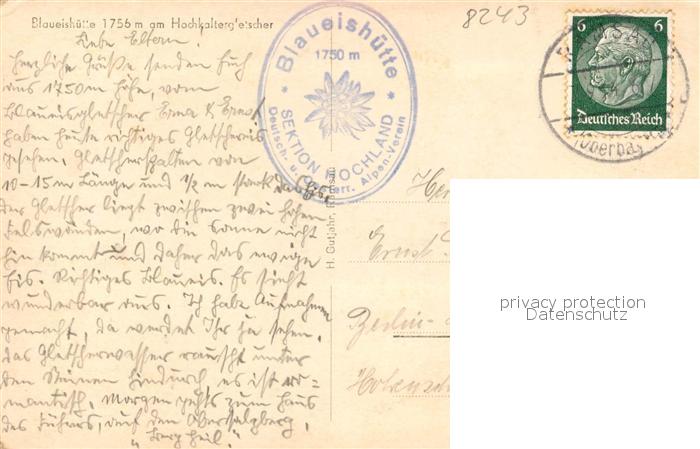 Blaueishütte 1756 m am Hochkaltergletscher
8243
Liebe Eltern,
herzliche Grüße senden Euch
aus 1750 m Höhe, vom
Blaueisgletscher Erna & Ernst
haben heute richtiges Gletschereis
gesehen, Gletscherspalten von
10-15 m Länge und 1/2 m stark das Eis,
der Gletscher liegt zwischen zwei hohen
Felswänden, wo die Sonne nicht
hin kommt und daher das ewige
Eis. Richtiges Blaueis. Es sieht
wunderbar aus. Ich habe Aufnahmen
gemacht, da werdet Ihr ja sehen,
das Gletscherwasser rauscht unter
den Steinen hindurch es ist ro=
mantisch, Morgen gehts zum Haus
des Führers, auf den Obersalzberg,
"Berg Heil."
* Blaueishütte *
1750 m
SEKTION HOCHLAND
Deutsch. u. Österr. Alpen-Verein
H. Gutjahr, Ramsau
6 6
Deutsches Reich
RAMSAU
(Oberbay.
Ernst
Berlin-
privacy protection
Datenschutz